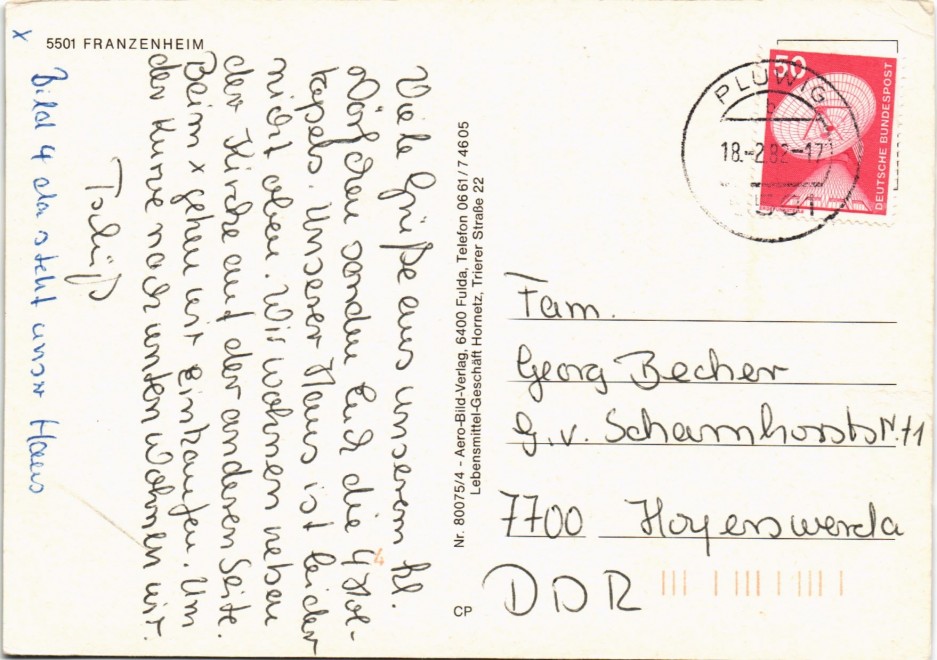 5501 FRANZENHEIM
x
Bild 4 da steht unser Haus
Viele Grüße aus unserem kl.
Dörfchen senden Euch die 4 Hol-
tapels. Unserer Haus ist leider
nicht oben. Wir wohnen neben
der Kirche auf der anderen Seite.
Beim x gehen wir Einkaufen. Um
der Kurve nach unten wohnen wir.
Tschüß
Nr. 80075/4 - Aero-Bild-Verlag, 6400 Fulda, Telefon 0661/74605
Lebensmittel-Geschäft Hornetz, Trierer Straße 22
CP
50
DEUTSCHE BUNDESPOST
PLUWIG
b
18.-2.82-17
5501
Fam.
Georg Becher
G.v. Scharnhorststr. 41
7700 Hoyerswerda
DDR
4